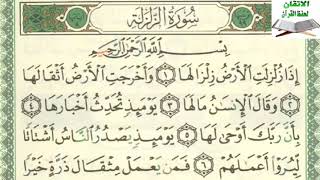 الاتقان
لحفظ القرآن
سُورَةُ الزَّلْزَلَةِ
بِسْمِ اللَّهِ الرَّحْمَٰنِ الرَّحِيمِ
إِذَا زُلْزِلَتِ الْأَرْضُ زِلْزَالَهَا ١ وَأَخْرَجَتِ الْأَرْضُ أَثْقَالَهَا
٢ وَقَالَ الْإِنسَانُ مَا لَهَا ٣ يَوْمَئِذٍ تُحَدِّثُ أَخْبَارَهَا ٤
بِأَنَّ رَبَّكَ أَوْحَىٰ لَهَا ٥ يَوْمَئِذٍ يَصْدُرُ النَّاسُ أَشْتَاتًا
لِّيُرَوْا أَعْمَالَهُمْ ٦ فَمَن يَعْمَلْ مِثْقَالَ ذَرَّةٍ خَيْرًا